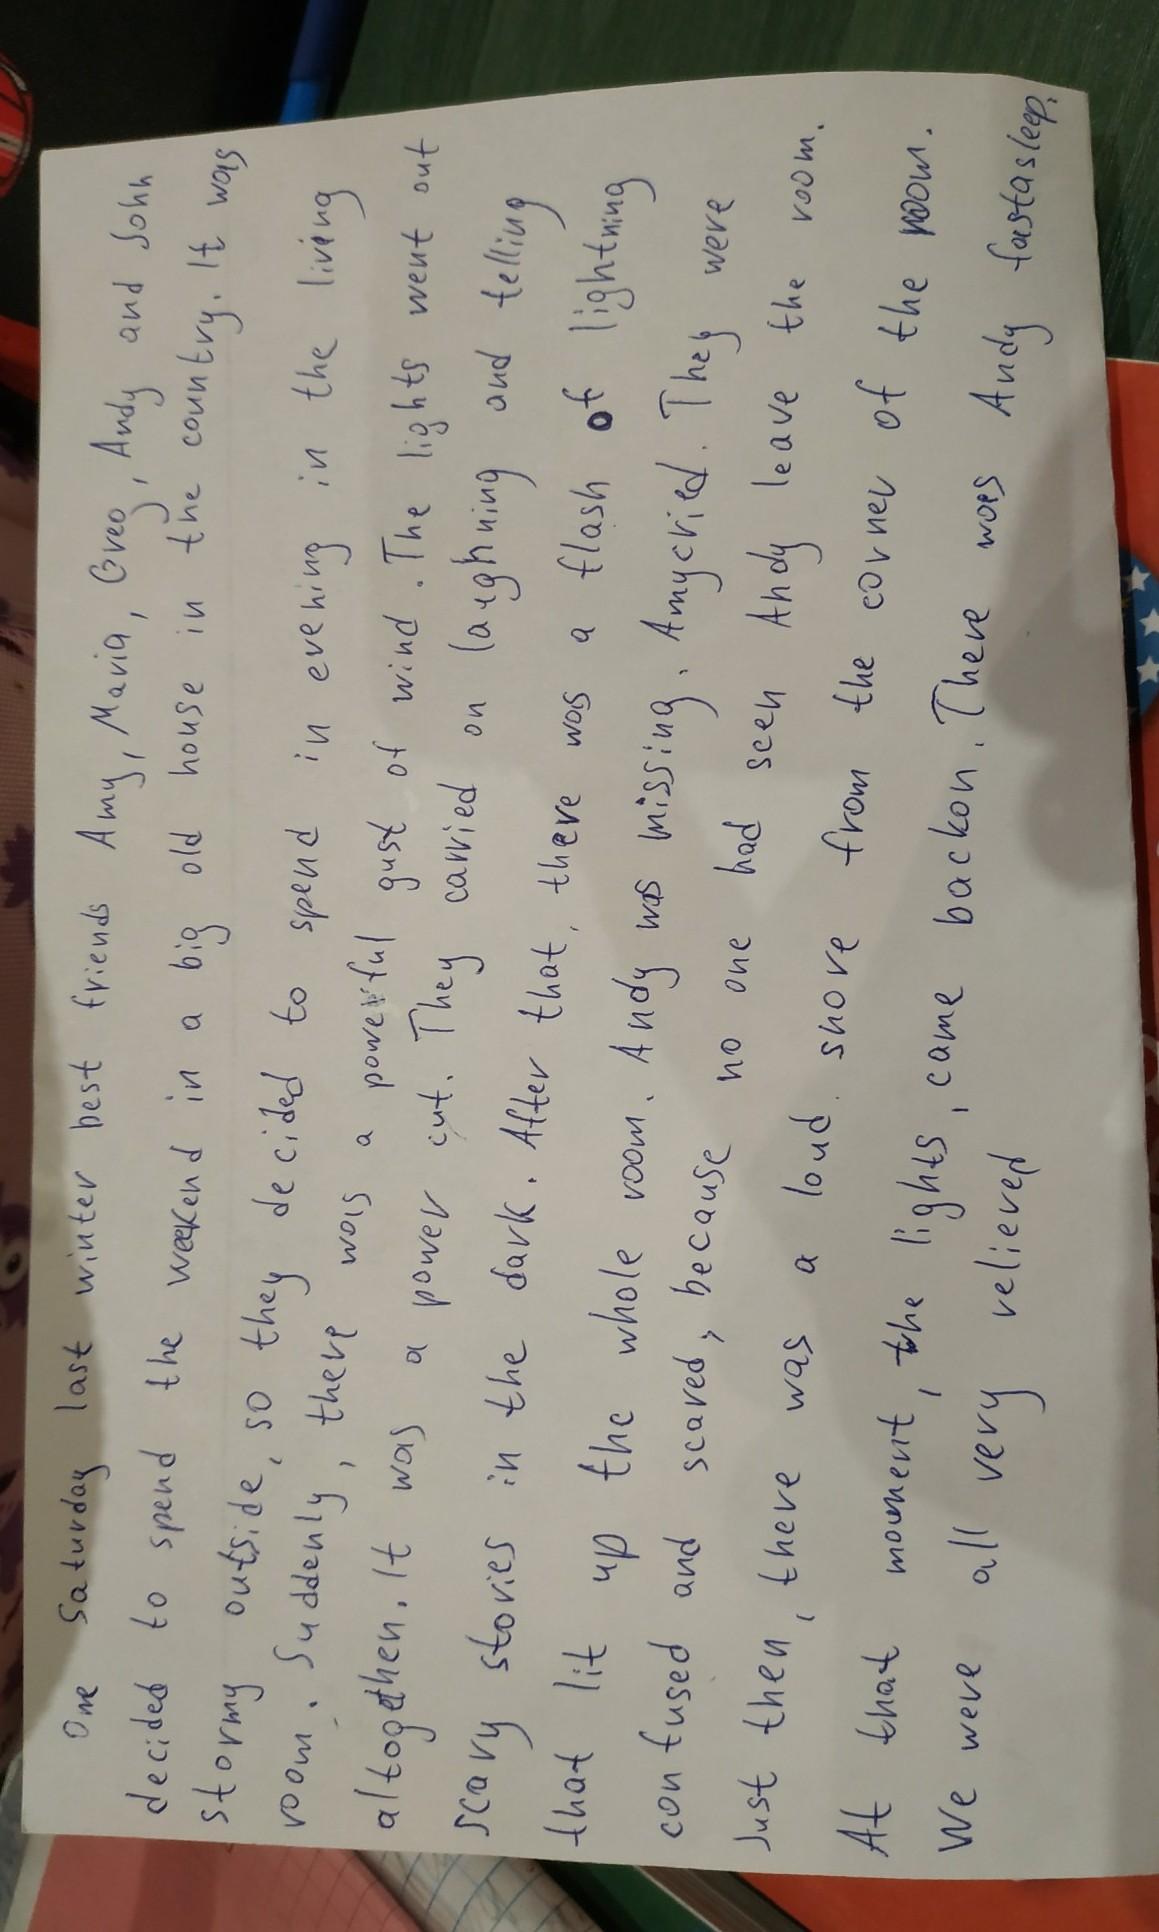 One Saturday last winter best friends Amy, Maria, Greo, Andy and John
decided to spend the weekend in a big old house in the country. It was
stormy outside, so they decided to spend in evening in the living
room. Suddenly, there was a powerful gust of wind. The lights went out
altogethen. It was a power cut. They carried on laughning and telling
scary stories in the dark. After that, there was a flash of lightning
that lit up the whole room. Andy was missing. Amycried. They were
confused and scared, because no one had seen Andy leave the room.
Just then, there was a loud snore from the corner of the room.
At that moument, the lights, came backon. There was Andy fastasleep.
We were all very relieved